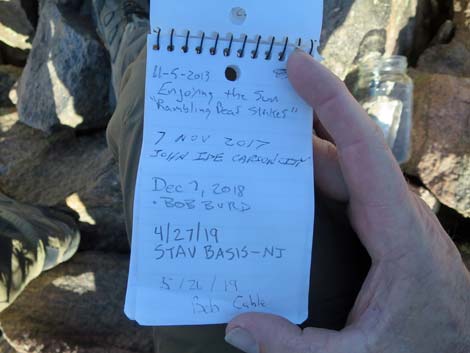 11-5-2013
Enjoying the Sun
"Rambling Bear Strikes"
7 NOV 2017
JOHN IDE CARSON CITY
Dec 7, 2018
• BOB BURD
4/27/19
STAV BASIS-NJ
5/21/19
Bob Cable